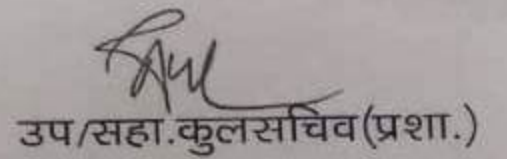 उप/सहा.कुलसचिव(प्रशा.)